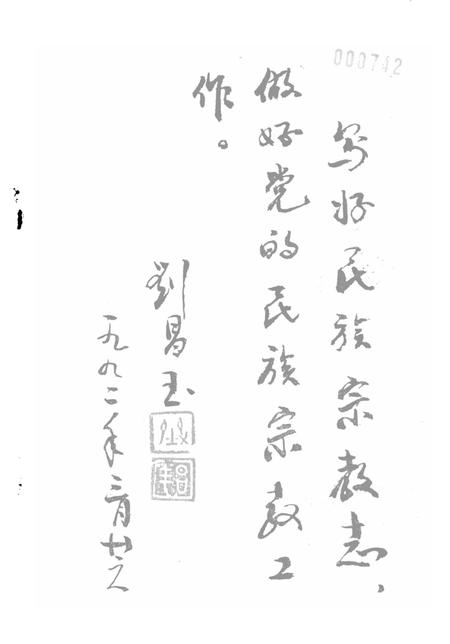 000742
写好民族宗教志，
做好党的民族宗教工
作。
劉昌玉
一九九二年三月廿六